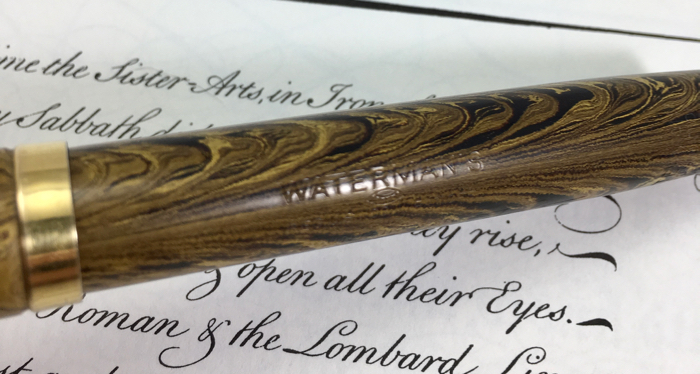 ime the Sister-Arts, in Iron
y Sabbath
WATERMAN'S
rise,
open all their Eyes.
Roman & the Lombard